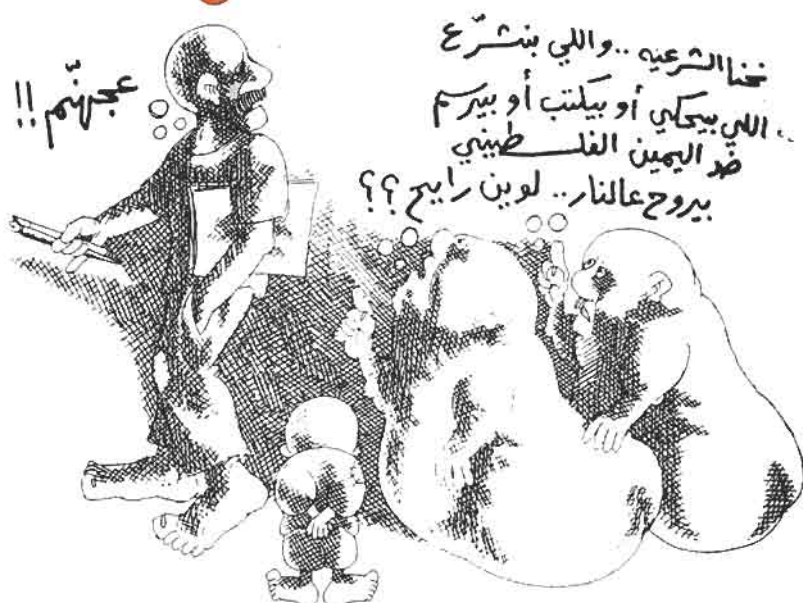 نحنا الشرعيه .. واللي بنشرّع
.. اللي بيحكي أو بيكتب أو بيرسم
ضد اليمين الفلسطيني
بيروح عالنار .. لوين رايح ؟؟
عجهنّم !!